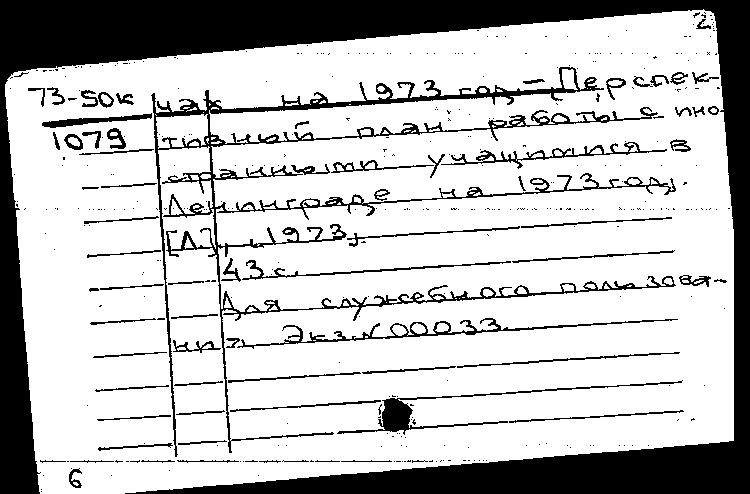 2
73-50к чах на 1973 год. – Перспек-
1079 тивный план работы с ино-
странными учащимися в
Ленинграде на 1973 год.
[Л], 1973.
43 с.
Для служебного пользова-
ния. Экз. N 00033.
6